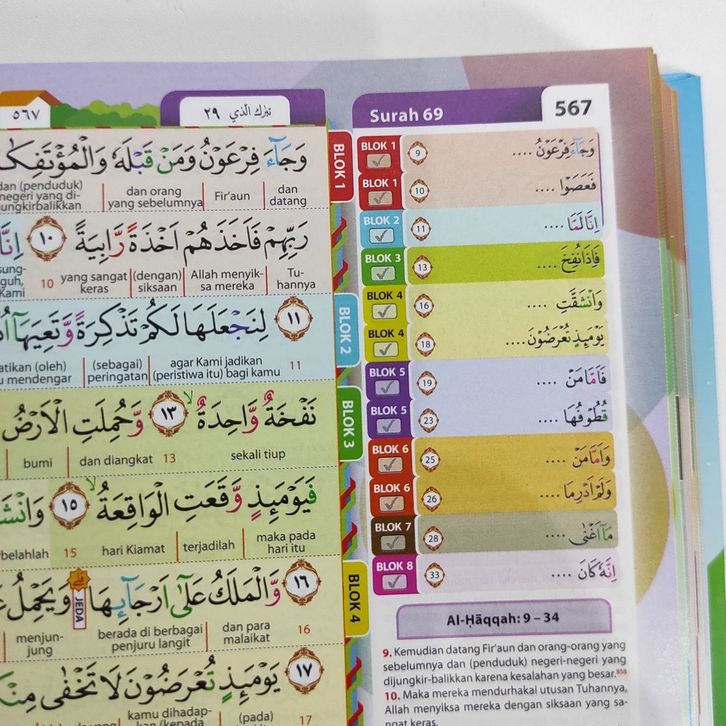 ٥٦٧
تبٰرك الّذي ٢٩
Surah 69
567
وَجَاۤءَ فِرْعَوْنُ وَمَنْ قَبْلَهٗ
dan (penduduk) negeri yang di-
jungkirbalikkan
dan orang yang sebelumnya
Fir'aun
dan datang
رَبِّهِمْ فَاَخَذَهُمْ اَخْذَةً رَّابِيَةً ١٠
10
yang sangat keras
(dengan) siksaan
Allah menyik-
sa mereka
Tu-
hannya
١١ لِنَجْعَلَهَا لَكُمْ تَذْكِرَةً وَّتَعِيَهَآ
mendengar
(sebagai) peringatan
agar Kami jadikan (peristiwa itu) bagi kamu
11
نَفْخَةٌ وَّاحِدَةٌ ١٣ وَّحُمِلَتِ الْاَرْضُ
bumi
dan diangkat
13
sekali tiup
فَيَوْمَىِٕذٍ وَّقَعَتِ الْوَاقِعَةُ ١٥
15
hari Kiamat
terjadilah
maka pada hari itu
١٦ وَّالْمَلَكُ عَلٰٓى اَرْجَاۤىِٕهَا وَيَحْمِلُ
JEDA
menjun-
jung
berada di berbagai penjuru langit
dan para malaikat
16
١٧ يَوْمَىِٕذٍ تُعْرَضُوْنَ لَا تَخْفٰى
kamu dihadap-
(pada)
17
BLOK 1
BLOK 2
BLOK 3
BLOK 4
BLOK 1 9 وَجَاۤءَ فِرْعَوْنُ ....
BLOK 1 10 فَعَصَوْا ....
BLOK 2 11 اِنَّا لَمَّا ....
BLOK 3 13 فَاِذَا نُفِخَ ....
BLOK 4 16 وَانْشَقَّتِ ....
BLOK 4 18 يَوْمَىِٕذٍ تُعْرَضُوْنَ ....
BLOK 5 19 فَاَمَّا مَنْ ....
BLOK 5 23 قُطُوْفُهَا ....
BLOK 6 25 وَاَمَّا مَنْ ....
BLOK 6 26 وَلَمْ اَدْرِ مَا ....
BLOK 7 28 مَآ اَغْنٰى ....
BLOK 8 33 اِنَّهٗ كَانَ ....
Al-Ḥāqqah: 9 – 34
9. Kemudian datang Fir'aun dan orang-orang yang
sebelumnya dan (penduduk) negeri-negeri yang
dijungkir-balikkan karena kesalahan yang besar.
10. Maka mereka mendurhakai utusan Tuhannya,
Allah menyiksa mereka dengan siksaan yang sa-
ngat keras.